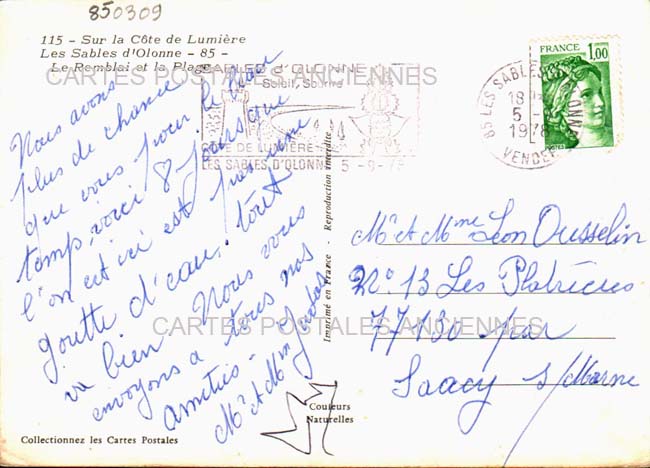 850309
115 - Sur la Côte de Lumière
Les Sables d'Olonne - 85 -
Le Remblai et la Plage
CARTES POSTALES ANCIENNES
SABLES D'OLONNE
Soleil, Sourire
CÔTE DE LUMIÈRE
LES SABLES D'OLONNE 5-9-78
85 LES SABLES D'OLONNE
18H
5-9
1978
VENDEE
FRANCE
1,00
POSTES
Nous avons
plus de chance
que vous pour le beau
temps, voici 8 jours que
l'on est ici est pas une
goutte d'eau, tout
va bien. Nous vous
envoyons a tous nos
amitiés -
Mr et Mme
Imprimé en France - Reproduction interdite
Mr et Mme Léon Ousselin
No 13 Les Platrières
77130 par
Saacy s/Marne
CARTES POSTALES ANCIENNES
Couleurs
Naturelles
Collectionnez les Cartes Postales